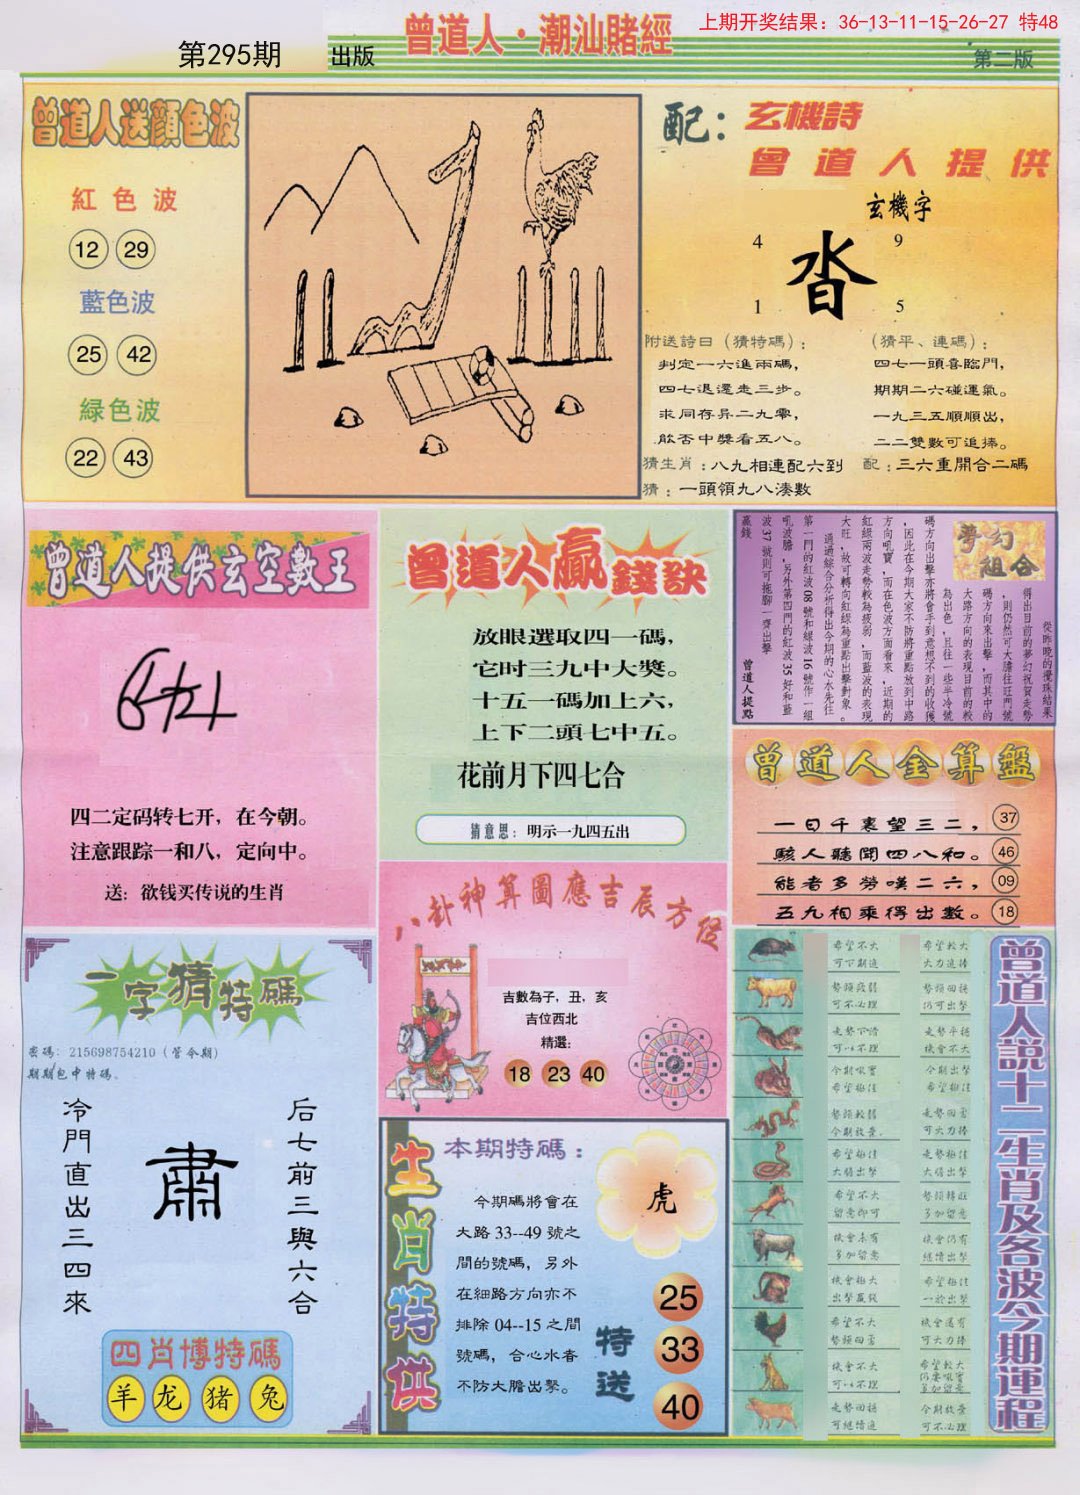 曾道人·潮汕賭經
上期开奖结果：36-13-11-15-26-27 特48
第295期
出版
第二版
曾道人送顔色波
紅色波
12 29
藍色波
25 42
緑色波
22 43
配：玄機詩
曾道人提供
玄機字
4 9
沓
1 5
附送詩曰（猜特碼）；
判定一六進兩碼，
四七退還走三步。
求同存异二九零，
能否中獎看五八。
（猜平、連碼）；
四七一頭喜臨門，
期期二六碰運氣。
一九三五順順出，
二二雙數可追捧。
猜生肖：八九相連配六到
配：三六重開合二碼
猜：一頭領九八湊數
曾道人提供玄空數王
四二定码转七开，在今朝。
注意跟踪一和八，定向中。
送：欲钱买传说的生肖
曾道人贏錢訣
放眼選取四一碼，
它时三九中大獎。
十五一碼加上六，
上下二頭七中五。
花前月下四七合
猜意思：明示一九四五出
夢幻組合
從昨晚的攪珠結果
得出目前的夢幻祝賀走勢
，則仍然可大膽往旺門號
碼方向來出擊，而其中的
大路方向的表現目前的較
為出色，且往一些半冷號
碼方向出擊亦將會手到意想不到的收獲
，因此在今期大家不防將重點放到中路
方向吼寶，而在色波方面看來，近期的
紅綠兩波走勢較為疲弱，而藍波的表現
大旺，故可轉向紅綠為重點出擊對象。
通過綜合分析得出今期的心水先往
第一門的紅波08號和綠波16號作一組
吼波膽，另外第四門的紅波35好和藍
波37號則可拖腳一齊出擊
贏錢
曾道人提點
曾道人全算盤
一日千裏望三二，37
駭人聽聞四八和。46
能者多勞嘆二六，09
五九相乘得出數。18
八卦神算圖應吉辰方位
吉數為子，丑，亥
吉位西北
精選：
18 23 40
一字猜特碼
密碼：215698754210（管令期）
期期包中特碼、
冷門直出三四來
肅
后七前三與六合
四肖博特碼
羊 龙 猪 兔
生肖特供
本期特碼：
今期碼將會在
大路33--49號之
間的號碼，另外
在細路方向亦不
排除04--15之間
號碼，合心水者
不防大膽出擊。
虎
特送
25
33
40
曾道人說十二生肖及各波今期運程
希望不大
可下期追
希望較大
大力追捧
勢頭疲弱
可不必理
勢頭回揚
仍可出擊
走勢下滑
可以不理
走勢平穩
機會不大
今期吼寶
希望極佳
今期出擊
希望極佳
勢頭較弱
今期放棄
走勢回勇
可大力捧
希望極佳
大膽出擊
走勢極佳
大膽出擊
希望不大
留意即可
勢頭轉旺
多加留意
機會未有
多加留意
機會仍有
繼續出擊
機會極大
出擊贏錢
希望極佳
一於出擊
希望不大
勢頭回勇
機會還有
可大力捧
機會不大
可以不理
希望較大
仍要吼實
多加留意
走勢回揚
可繼續追
今期放棄
可不必理